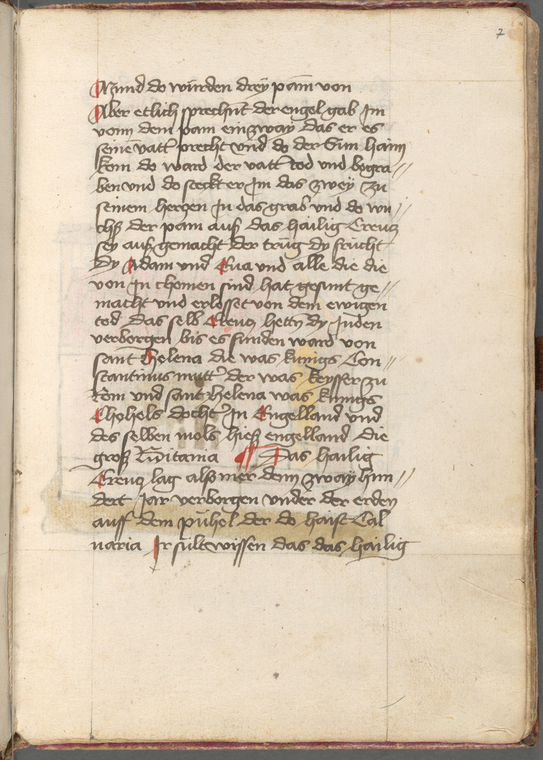 2
Vnnd do wurden drey pam von
Aber etlich sprechnt der engel gab Im
vonn dem pam ein zway das er es
seine vatt precht vnd do der Sun haim
kom do ward der vatt tod vnd begra
ben vnd do steckt er Im das zwey zu
seinem herczen In das grab vnd do wu
chs der pam auß das hailig Creucz
sey auß gemacht der trug dy frücht
dy Adam vnd Eua vnd alle die die
von In chomen sind hat gesunt ge
macht vnd erlosset von dem ewigen
tod Das selb Creucz hettn dy Juden
verborgen bis es funden ward von
sant Helena die was kunigs Con
stantinus mutt der was keysser zu
Rom vnd sant helena was kunigs
Chohels docht In Engelland vnd
des selben mols hieß engelland die
groß Writania Das hailig
Creucz lag alß mer dann zway hun
dert Jar verborgen vnder der erden
auff dem pühel der do haist Cal
uaria Ir sult wissen das das hailig